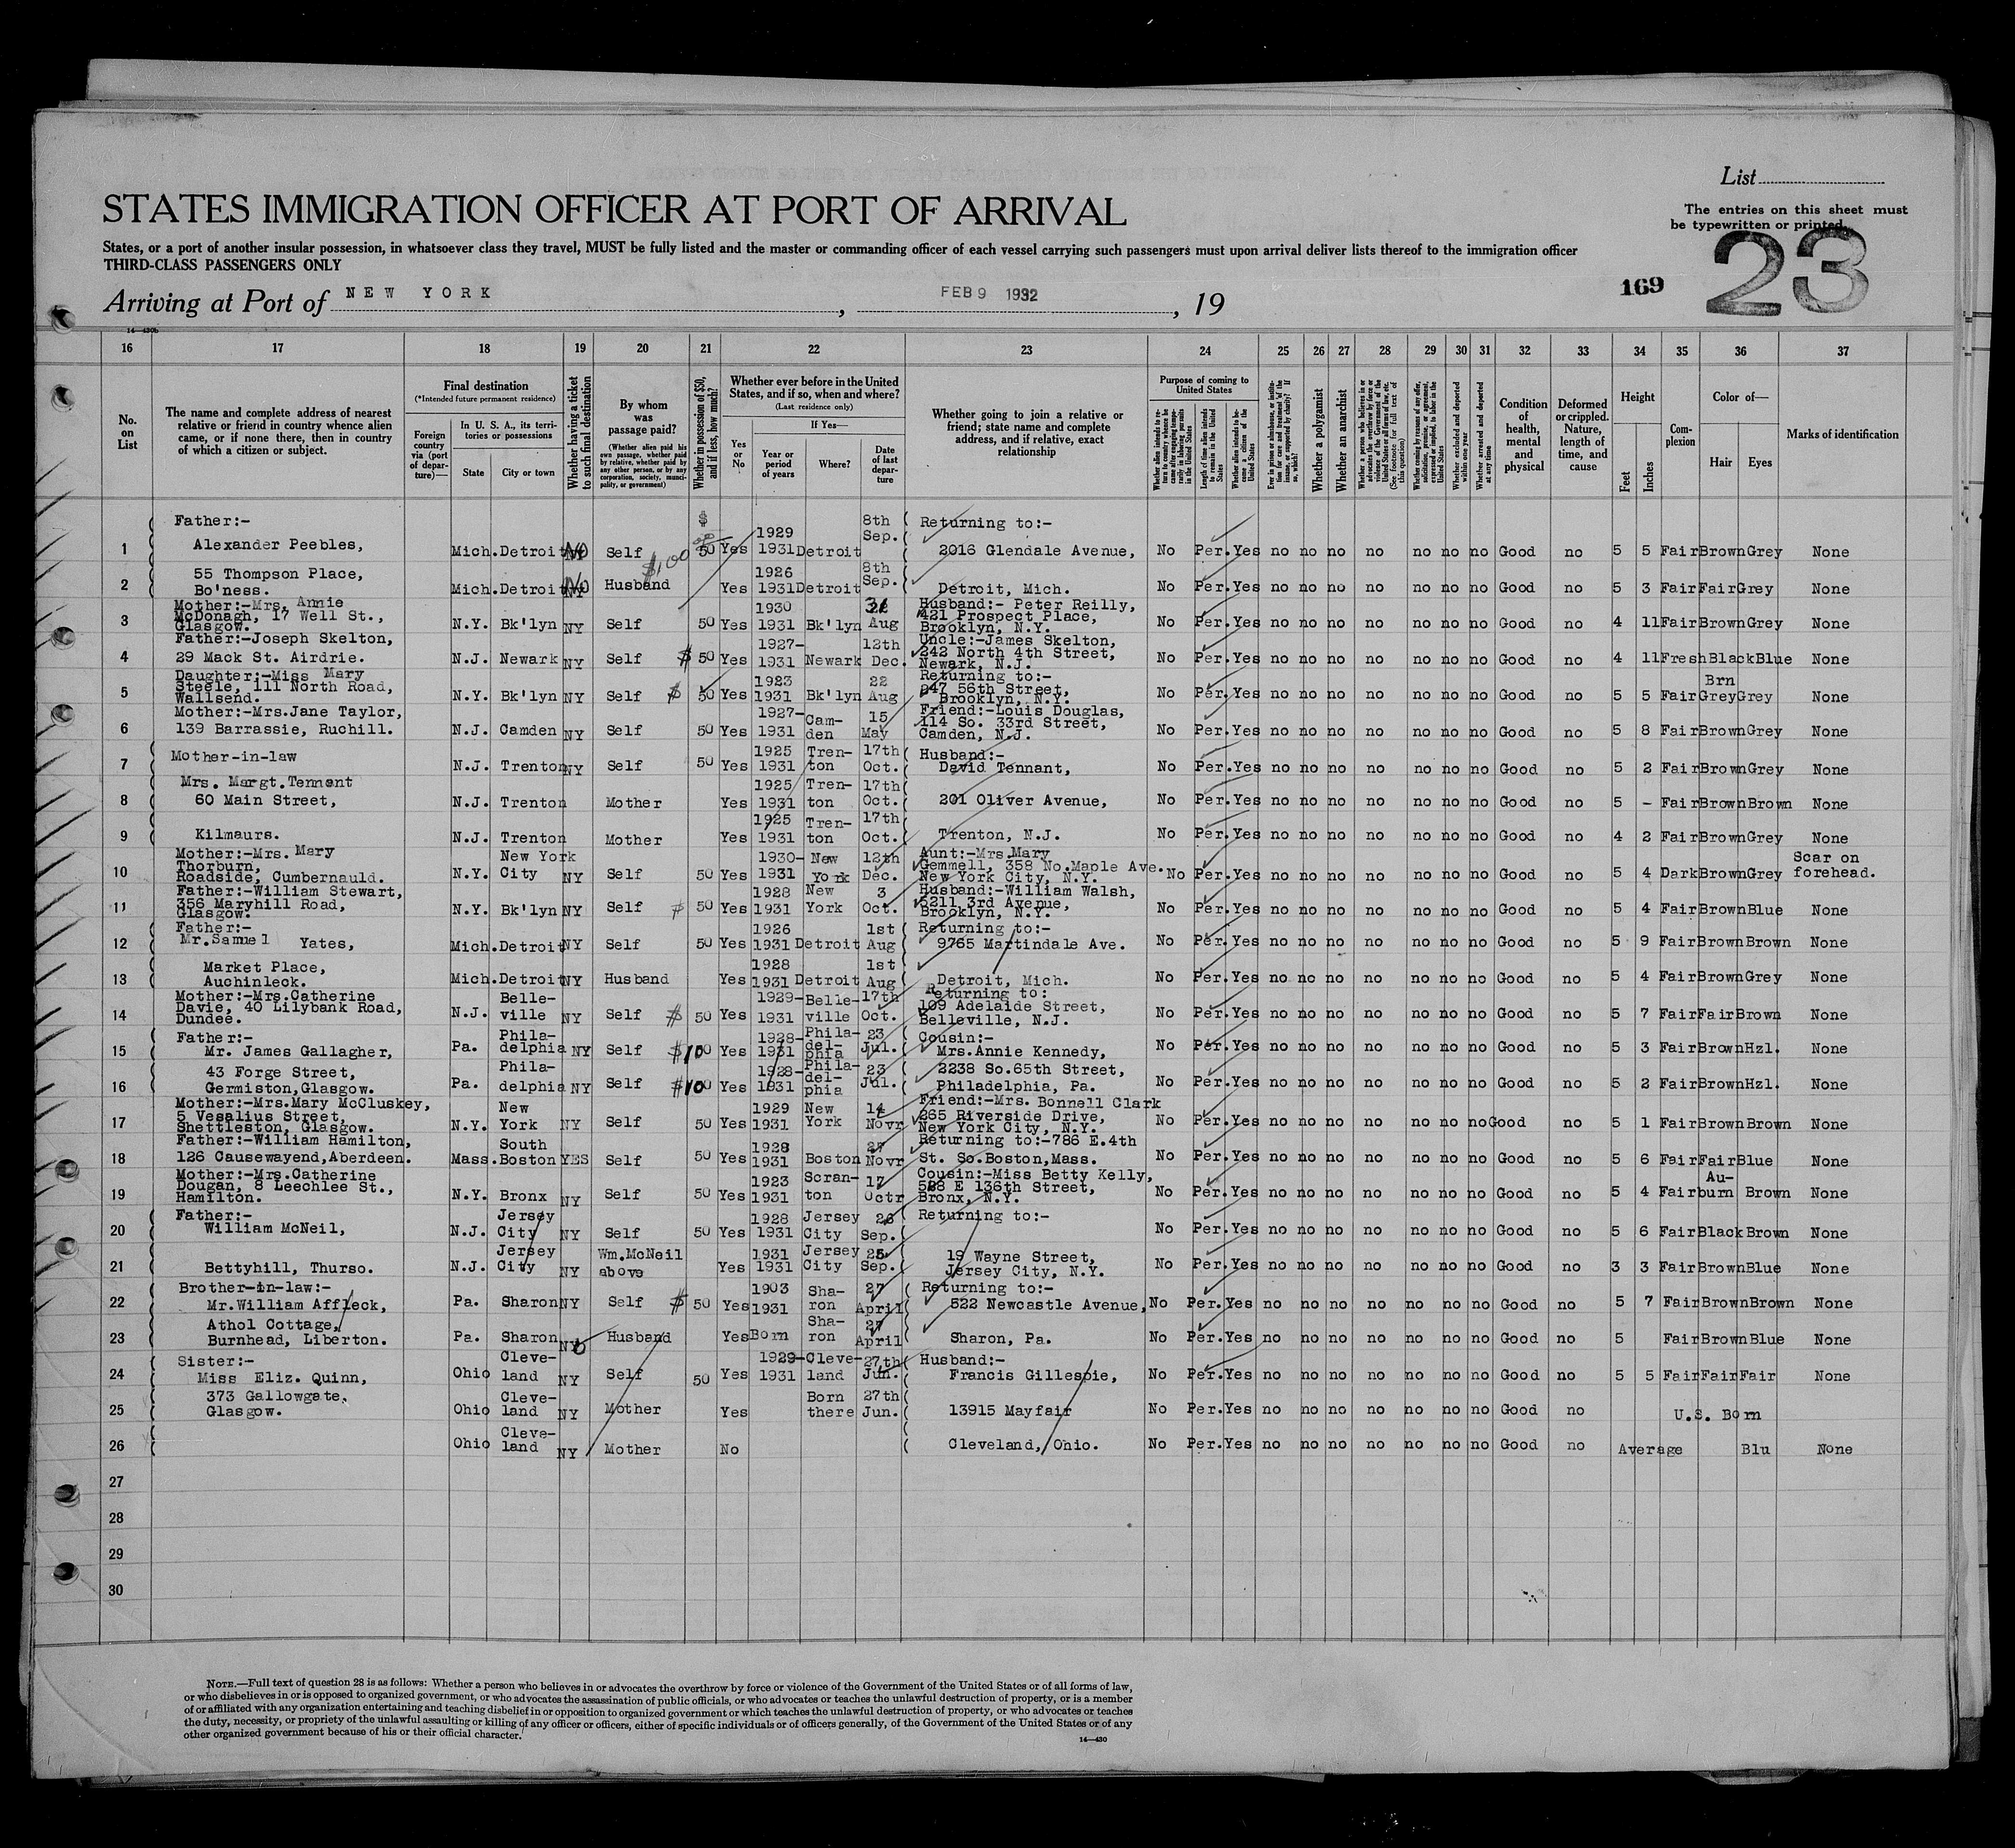 List
STATES IMMIGRATION OFFICER AT PORT OF ARRIVAL
The entries on this sheet must
be typewritten or printed.
States, or a port of another insular possession, in whatsoever class they travel, MUST be fully listed and the master or commanding officer of each vessel carrying such passengers must upon arrival deliver lists thereof to the immigration officer
THIRD-CLASS PASSENGERS ONLY
169 23
Arriving at Port of NEW YORK, FEB 9 1932, 19
14—430b
16 17 18 19 20 21 22 23 24 25 26 27 28 29 30 31 32 33 34 35 36 37
No. on List
The name and complete address of nearest relative or friend in country whence alien came, or if none there, then in country of which a citizen or subject.
Final destination
(*Intended future permanent residence)
Foreign country via (port of departure)—
In U. S. A., its territories or possessions
State City or town
Whether having a ticket to such final destination
By whom was passage paid?
(Whether alien paid his own passage, whether paid by relative, whether paid by any other person, or by any corporation, society, municipality, or government)
Whether in possession of $50, and if less, how much?
Whether ever before in the United States, and if so, when and where?
(Last residence only)
Yes or No
If Yes—
Year or period of years Where? Date of last departure
Whether going to join a relative or friend; state name and complete address, and if relative, exact relationship
Purpose of coming to United States
Whether alien intends to return to country whence he came after engaging temporarily in laboring pursuits in the United States
Length of time alien intends to remain in the United States
Whether alien intends to become a citizen of the United States
Ever in prison or almshouse, or institution for care and treatment of the insane, or supported by charity? If so, which?
Whether a polygamist
Whether an anarchist
Whether a person who believes in or advocates the overthrow by force or violence of the Government of the United States or all forms of law, etc. (See footnote for full text of this question)
Whether coming by reason of any offer, solicitation, promise, or agreement, expressed or implied, to labor in the United States
Whether excluded and deported within one year
Whether arrested and deported at any time
Condition of health, mental and physical
Deformed or crippled. Nature, length of time, and cause
Height
Feet Inches
Complexion
Color of—
Hair Eyes
Marks of identification
1 Father:- Alexander Peebles, Mich. Detroit No Self $100 50 Yes 1929 1931 Detroit 8th Sep. Returning to:- 2016 Glendale Avenue, No Per. Yes no no no no no no no Good no 5 5 Fair Brown Grey None
2 55 Thompson Place, Bo'ness. Mich. Detroit No Husband Yes 1926 1931 Detroit 8th Sep. Detroit, Mich. No Per. Yes no no no no no no no Good no 5 3 Fair Fair Grey None
3 Mother:-Mrs. Annie McDonagh, 17 Well St., Glasgow. N.Y. Bk'lyn NY Self 50 Yes 1930 1931 Bk'lyn Aug Husband:- Peter Reilly, 421 Prospect Place, Brooklyn, N.Y. No Per. Yes no no no no no no no Good no 4 11 Fair Brown Grey None
4 Father:-Joseph Skelton, 29 Mack St. Airdrie. N.J. Newark NY Self $ 50 Yes 1927- 1931 Newark 12th Dec. Uncle:-James Skelton, 242 North 4th Street, Newark, N.J. No Per. Yes no no no no no no no Good no 4 11 Fresh Black Blue None
5 Daughter:-Miss Mary Steele, 111 North Road, Wallsend. N.Y. Bk'lyn NY Self $ 50 Yes 1923 1931 Bk'lyn 22 Aug Returning to:- 247 56th Street, Brooklyn, N.Y. No Per. Yes no no no no no no no Good no 5 5 Fair Brn Grey Grey None
6 Mother:-Mrs.Jane Taylor, 139 Barrassie, Ruchill. N.J. Camden NY Self 50 Yes 1927- 1931 Camden 15 May Friend:-Louis Douglas, 114 So. 33rd Street, Camden, N.J. No Per. Yes no no no no no no no Good no 5 8 Fair Brown Grey None
7 Mother-in-law N.J. Trenton NY Self 50 Yes 1925 1931 Trenton 17th Oct. Husband:- David Tennant, No Per. Yes no no no no no no no Good no 5 2 Fair Brown Grey None
8 Mrs. Margt.Tennent 60 Main Street, N.J. Trenton Mother Yes 1925 1931 Trenton 17th Oct. 201 Oliver Avenue, No Per. Yes no no no no no no no Good no 5 - Fair Brown Brown None
9 Kilmaurs. N.J. Trenton Mother Yes 1925 1931 Trenton 17th Oct. Trenton, N.J. No Per. Yes no no no no no no no Good no 4 2 Fair Brown Grey None
10 Mother:-Mrs. Mary Thorburn, Roadside, Cumbernauld. N.Y. New York City NY Self 50 Yes 1930- 1931 New York 12th Dec. Aunt:-Mrs.Mary Gemmell, 358 No.Maple Ave. New York City, N.Y. No Per. Yes no no no no no no no Good no 5 4 Dark Brown Grey Scar on forehead.
11 Father:-William Stewart, 356 Maryhill Road, Glasgow. N.Y. Bk'lyn NY Self 50 Yes 1928 1931 New York 3 Oct. Husband:-William Walsh, 5211 3rd Avenue, Brooklyn, N.Y. No Per. Yes no no no no no no no Good no 5 4 Fair Brown Blue None
12 Father:- Mr.Samuel Yates, Mich. Detroit NY Self 50 Yes 1926 1931 Detroit 1st Aug Returning to:- 9765 Martindale Ave. No Per. Yes no no no no no no no Good no 5 9 Fair Brown Brown None
13 Market Place, Auchinleck. Mich. Detroit NY Husband Yes 1928 1931 Detroit 1st Aug Detroit, Mich. No Per. Yes no no no no no no no Good no 5 4 Fair Brown Grey None
14 Mother:-Mrs.Catherine Davie, 40 Lilybank Road, Dundee. N.J. Belleville NY Self $ 50 Yes 1929- 1931 Belleville 17th Oct. Returning to: 109 Adelaide Street, Belleville, N.J. No Per. Yes no no no no no no no Good no 5 7 Fair Fair Brown None
15 Father:- Mr. James Gallagher, Pa. Philadelphia NY Self $100 Yes 1928- 1931 Philadelphia 23 Jul. Cousin:- Mrs.Annie Kennedy, No Per. Yes no no no no no no no Good no 5 3 Fair Brown Hzl. None
16 43 Forge Street, Germiston,Glasgow. Pa. Philadelphia NY Self $100 Yes 1928- 1931 Philadelphia 23 Jul. 2238 So.65th Street, Philadelphia, Pa. No Per. Yes no no no no no no no Good no 5 2 Fair Brown Hzl. None
17 Mother:-Mrs.Mary McCluskey, 5 Vesalius Street, Shettleston, Glasgow. N.Y. New York NY Self 50 Yes 1929 1931 New York 14 Novr Friend:-Mrs. Bonnell Clark 265 Riverside Drive, New York City, N.Y. No Per. Yes no no no no no no no Good no 5 1 Fair Brown Brown None
18 Father:-William Hamilton, 126 Causewayend,Aberdeen. Mass. South Boston YES Self 50 Yes 1928 1931 Boston 27 Novr Returning to:-786 E.4th St. So.Boston,Mass. No Per. Yes no no no no no no no Good no 5 6 Fair Fair Blue None
19 Mother:-Mrs.Catherine Dougan, 8 Leechlee St., Hamilton. N.Y. Bronx NY Self 50 Yes 1923 1931 Scranton 17 Octr Cousin:-Miss Betty Kelly, 528 E 136th Street, Bronx, N.Y. No Per. Yes no no no no no no no Good no 5 4 Fair Auburn Brown None
20 Father:- William McNeil, N.J. Jersey City NY Self 50 Yes 1928 1931 Jersey City 26 Sep. Returning to:- No Per. Yes no no no no no no no Good no 5 6 Fair Black Brown None
21 Bettyhill, Thurso. N.J. Jersey City NY Wm.McNeil above Yes 1931 1931 Jersey City 25 Sep. 19 Wayne Street, Jersey City, N.Y. No Per. Yes no no no no no no no Good no 3 3 Fair Brown Blue None
22 Brother-in-law:- Mr.William Affleck, Pa. Sharon NY Self $ 50 Yes 1903 1931 Sharon 27 April Returning to:- 522 Newcastle Avenue, No Per. Yes no no no no no no no Good no 5 7 Fair Brown Brown None
23 Athol Cottage, Burnhead, Liberton. Pa. Sharon NY Husband Yes Born Sharon 27 April Sharon, Pa. No Per. Yes no no no no no no no Good no 5 Fair Brown Blue None
24 Sister:- Miss Eliz. Quinn, Ohio Cleveland NY Self 50 Yes 1929- 1931 Cleveland 27th Jun. Husband:- Francis Gillespie, No Per. Yes no no no no no no no Good no 5 5 Fair Fair Fair None
25 373 Gallowgate, Glasgow. Ohio Cleveland NY Mother Yes Born there 27th Jun. 13915 Mayfair No Per. Yes no no no no no no no Good no U.S. Born
26 Ohio Cleveland NY Mother No Cleveland, Ohio. No Per. Yes no no no no no no no Good no Average Blu None
27
28
29
30
NOTE.—Full text of question 28 is as follows: Whether a person who believes in or advocates the overthrow by force or violence of the Government of the United States or of all forms of law,
or who disbelieves in or is opposed to organized government, or who advocates the assassination of public officials, or who advocates or teaches the unlawful destruction of property, or is a member
of or affiliated with any organization entertaining and teaching disbelief in or opposition to organized government or which teaches the unlawful destruction of property, or who advocates or teaches
the duty, necessity, or propriety of the unlawful assaulting or killing of any officer or officers, either of specific individuals or of officers generally, of the Government of the United States or of any
other organized government because of his or their official character.
14—430